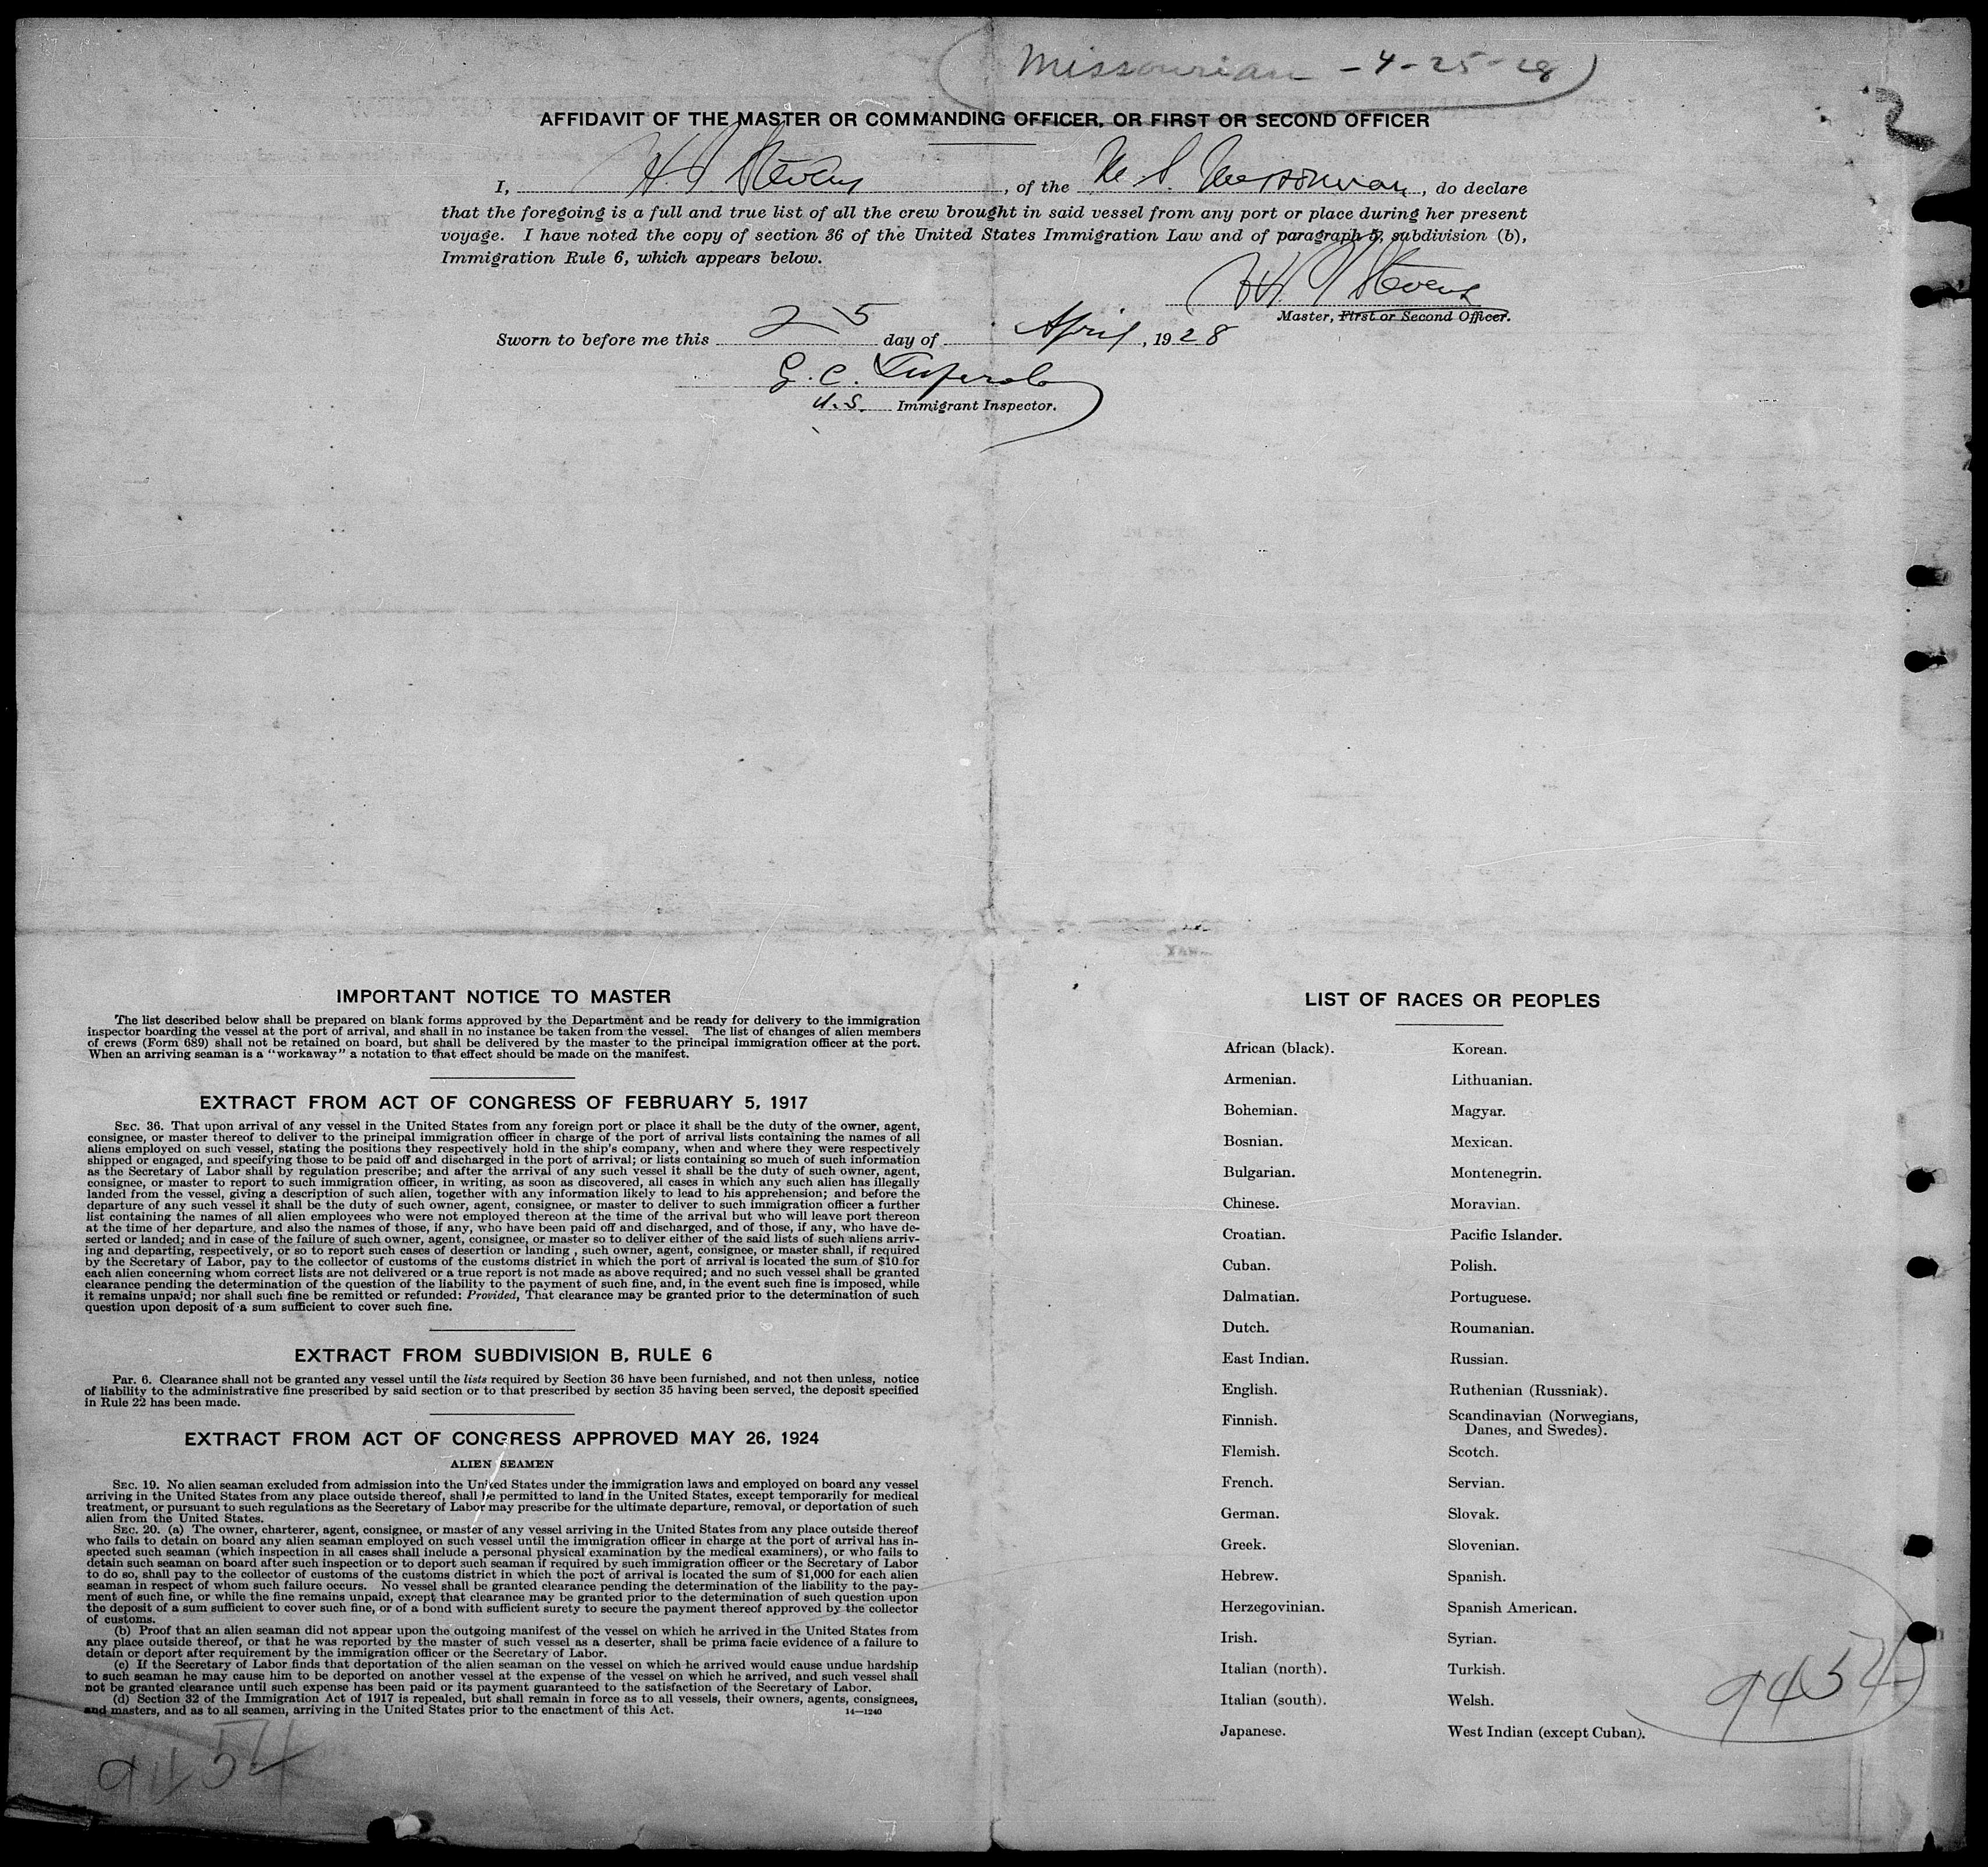 Missourian - 4-25-28
2
AFFIDAVIT OF THE MASTER OR COMMANDING OFFICER, OR FIRST OR SECOND OFFICER
I, H. Stevens, of the M. S. Missourian, do declare
that the foregoing is a full and true list of all the crew brought in said vessel from any port or place during her present
voyage. I have noted the copy of section 36 of the United States Immigration Law and of paragraph 5, subdivision (b),
Immigration Rule 6, which appears below.
Stevens
Master, First or Second Officer.
Sworn to before me this 25 day of April, 1928
G. C.
U.S. Immigrant Inspector.
IMPORTANT NOTICE TO MASTER
The list described below shall be prepared on blank forms approved by the Department and be ready for delivery to the immigration
inspector boarding the vessel at the port of arrival, and shall in no instance be taken from the vessel. The list of changes of alien members
of crews (Form 689) shall not be retained on board, but shall be delivered by the master to the principal immigration officer at the port.
When an arriving seaman is a "workaway" a notation to that effect should be made on the manifest.
EXTRACT FROM ACT OF CONGRESS OF FEBRUARY 5, 1917
SEC. 36. That upon arrival of any vessel in the United States from any foreign port or place it shall be the duty of the owner, agent,
consignee, or master thereof to deliver to the principal immigration officer in charge of the port of arrival lists containing the names of all
aliens employed on such vessel, stating the positions they respectively hold in the ship's company, when and where they were respectively
shipped or engaged, and specifying those to be paid off and discharged in the port of arrival; or lists containing so much of such information
as the Secretary of Labor shall by regulation prescribe; and after the arrival of any such vessel it shall be the duty of such owner, agent,
consignee, or master to report to such immigration officer, in writing, as soon as discovered, all cases in which any such alien has illegally
landed from the vessel, giving a description of such alien, together with any information likely to lead to his apprehension; and before the
departure of any such vessel it shall be the duty of such owner, agent, consignee, or master to deliver to such immigration officer a further
list containing the names of all alien employees who were not employed thereon at the time of the arrival but who will leave port thereon
at the time of her departure, and also the names of those, if any, who have been paid off and discharged, and of those, if any, who have de-
serted or landed; and in case of the failure of such owner, agent, consignee, or master so to deliver either of the said lists of such aliens arriv-
ing and departing, respectively, or so to report such cases of desertion or landing , such owner, agent, consignee, or master shall, if required
by the Secretary of Labor, pay to the collector of customs of the customs district in which the port of arrival is located the sum of $10 for
each alien concerning whom correct lists are not delivered or a true report is not made as above required; and no such vessel shall be granted
clearance pending the determination of the question of the liability to the payment of such fine, and, in the event such fine is imposed, while
it remains unpaid; nor shall such fine be remitted or refunded: Provided, That clearance may be granted prior to the determination of such
question upon deposit of a sum sufficient to cover such fine.
EXTRACT FROM SUBDIVISION B, RULE 6
Par. 6. Clearance shall not be granted any vessel until the lists required by Section 36 have been furnished, and not then unless, notice
of liability to the administrative fine prescribed by said section or to that prescribed by section 35 having been served, the deposit specified
in Rule 22 has been made.
EXTRACT FROM ACT OF CONGRESS APPROVED MAY 26, 1924
ALIEN SEAMEN
SEC. 19. No alien seaman excluded from admission into the United States under the immigration laws and employed on board any vessel
arriving in the United States from any place outside thereof, shall be permitted to land in the United States, except temporarily for medical
treatment, or pursuant to such regulations as the Secretary of Labor may prescribe for the ultimate departure, removal, or deportation of such
alien from the United States.
SEC. 20. (a) The owner, charterer, agent, consignee, or master of any vessel arriving in the United States from any place outside thereof
who fails to detain on board any alien seaman employed on such vessel until the immigration officer in charge at the port of arrival has in-
spected such seaman (which inspection in all cases shall include a personal physical examination by the medical examiners), or who fails to
detain such seaman on board after such inspection or to deport such seaman if required by such immigration officer or the Secretary of Labor
to do so, shall pay to the collector of customs of the customs district in which the port of arrival is located the sum of $1,000 for each alien
seaman in respect of whom such failure occurs. No vessel shall be granted clearance pending the determination of the liability to the pay-
ment of such fine, or while the fine remains unpaid, except that clearance may be granted prior to the determination of such question upon
the deposit of a sum sufficient to cover such fine, or of a bond with sufficient surety to secure the payment thereof approved by the collector
of customs.
(b) Proof that an alien seaman did not appear upon the outgoing manifest of the vessel on which he arrived in the United States from
any place outside thereof, or that he was reported by the master of such vessel as a deserter, shall be prima facie evidence of a failure to
detain or deport after requirement by the immigration officer or the Secretary of Labor.
(c) If the Secretary of Labor finds that deportation of the alien seaman on the vessel on which he arrived would cause undue hardship
to such seaman he may cause him to be deported on another vessel at the expense of the vessel on which he arrived, and such vessel shall
not be granted clearance until such expense has been paid or its payment guaranteed to the satisfaction of the Secretary of Labor.
(d) Section 32 of the Immigration Act of 1917 is repealed, but shall remain in force as to all vessels, their owners, agents, consignees,
and masters, and as to all seamen, arriving in the United States prior to the enactment of this Act.
14—1240
9454
LIST OF RACES OR PEOPLES
African (black).
Armenian.
Bohemian.
Bosnian.
Bulgarian.
Chinese.
Croatian.
Cuban.
Dalmatian.
Dutch.
East Indian.
English.
Finnish.
Flemish.
French.
German.
Greek.
Hebrew.
Herzegovinian.
Irish.
Italian (north).
Italian (south).
Japanese.
Korean.
Lithuanian.
Magyar.
Mexican.
Montenegrin.
Moravian.
Pacific Islander.
Polish.
Portuguese.
Roumanian.
Russian.
Ruthenian (Russniak).
Scandinavian (Norwegians,
Danes, and Swedes).
Scotch.
Servian.
Slovak.
Slovenian.
Spanish.
Spanish American.
Syrian.
Turkish.
Welsh.
West Indian (except Cuban).
9454